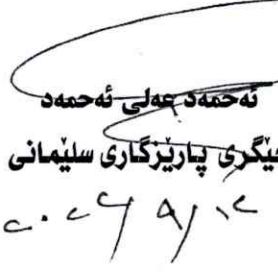 ئەحمەد عەلی ئەحمەد
جێگری پارێزگاری سلێمانی